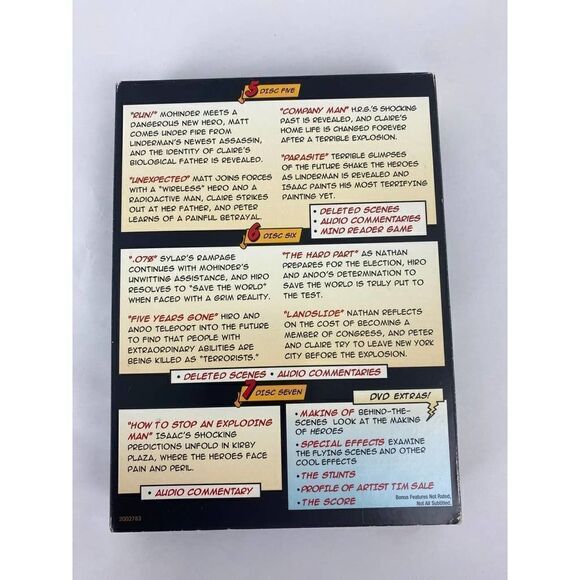 5 DISC FIVE
"RUN!" MOHINDER MEETS A
DANGEROUS NEW HERO, MATT
COMES UNDER FIRE FROM
LINDERMAN'S NEWEST ASSASSIN,
AND THE IDENTITY OF CLAIRE'S
BIOLOGICAL FATHER IS REVEALED.
"UNEXPECTED" MATT JOINS FORCES
WITH A "WIRELESS" HERO AND A
RADIOACTIVE MAN, CLAIRE STRIKES
OUT AT HER FATHER, AND PETER
LEARNS OF A PAINFUL BETRAYAL.
"COMPANY MAN" H.R.G.'S SHOCKING
PAST IS REVEALED, AND CLAIRE'S
HOME LIFE IS CHANGED FOREVER
AFTER A TERRIBLE EXPLOSION.
"PARASITE" TERRIBLE GLIMPSES
OF THE FUTURE SHAKE THE HEROES
AS LINDERMAN IS REVEALED AND
ISAAC PAINTS HIS MOST TERRIFYING
PAINTING YET.
• DELETED SCENES
• AUDIO COMMENTARIES
• MIND READER GAME
6 DISC SIX
".07%" SYLAR'S RAMPAGE
CONTINUES WITH MOHINDER'S
UNWITTING ASSISTANCE, AND HIRO
RESOLVES TO "SAVE THE WORLD"
WHEN FACED WITH A GRIM REALITY.
"FIVE YEARS GONE" HIRO AND
ANDO TELEPORT INTO THE FUTURE
TO FIND THAT PEOPLE WITH
EXTRAORDINARY ABILITIES ARE
BEING KILLED AS "TERRORISTS."
"THE HARD PART" AS NATHAN
PREPARES FOR THE ELECTION, HIRO
AND ANDO'S DETERMINATION TO
SAVE THE WORLD IS TRULY PUT TO
THE TEST.
"LANDSLIDE" NATHAN REFLECTS
ON THE COST OF BECOMING A
MEMBER OF CONGRESS, AND PETER
AND CLAIRE TRY TO LEAVE NEW YORK
CITY BEFORE THE EXPLOSION.
• DELETED SCENES • AUDIO COMMENTARIES
7 DISC SEVEN
"HOW TO STOP AN EXPLODING
MAN" ISAAC'S SHOCKING
PREDICTIONS UNFOLD IN KIRBY
PLAZA, WHERE THE HEROES FACE
PAIN AND PERIL.
• AUDIO COMMENTARY
DVD EXTRAS!
• MAKING OF BEHIND-THE-
SCENES LOOK AT THE MAKING
OF HEROES
• SPECIAL EFFECTS EXAMINE
THE FLYING SCENES AND OTHER
COOL EFFECTS
• THE STUNTS
• PROFILE OF ARTIST TIM SALE
• THE SCORE
Bonus Features Not Rated,
Not All Subtitled.
2002783